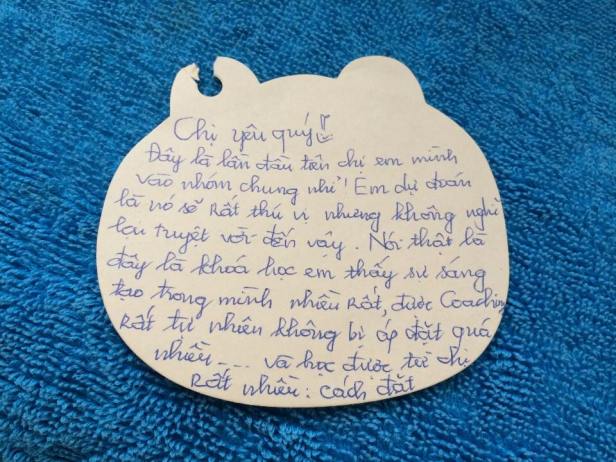 Chị yêu quý!
Đây là lần đầu tiên chị em mình
vào nhóm chung nhỉ! Em dự đoán
là nó sẽ rất thú vị nhưng không nghĩ
lại truyệt vời đến vậy. Nói thật là
đây là khoá học em thấy sự sáng
tạo trong mình nhiều rất, được Coaching
rất tự nhiên không bị áp đặt quá
nhiều.... và học được từ chị
rất nhiều: cách đặt